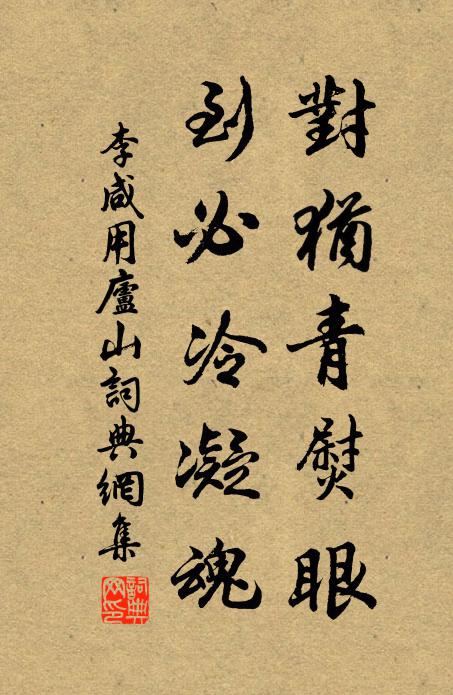 對猶青熨眼
到必冷凝魂
李咸用廬山詞典網集
詞典网印